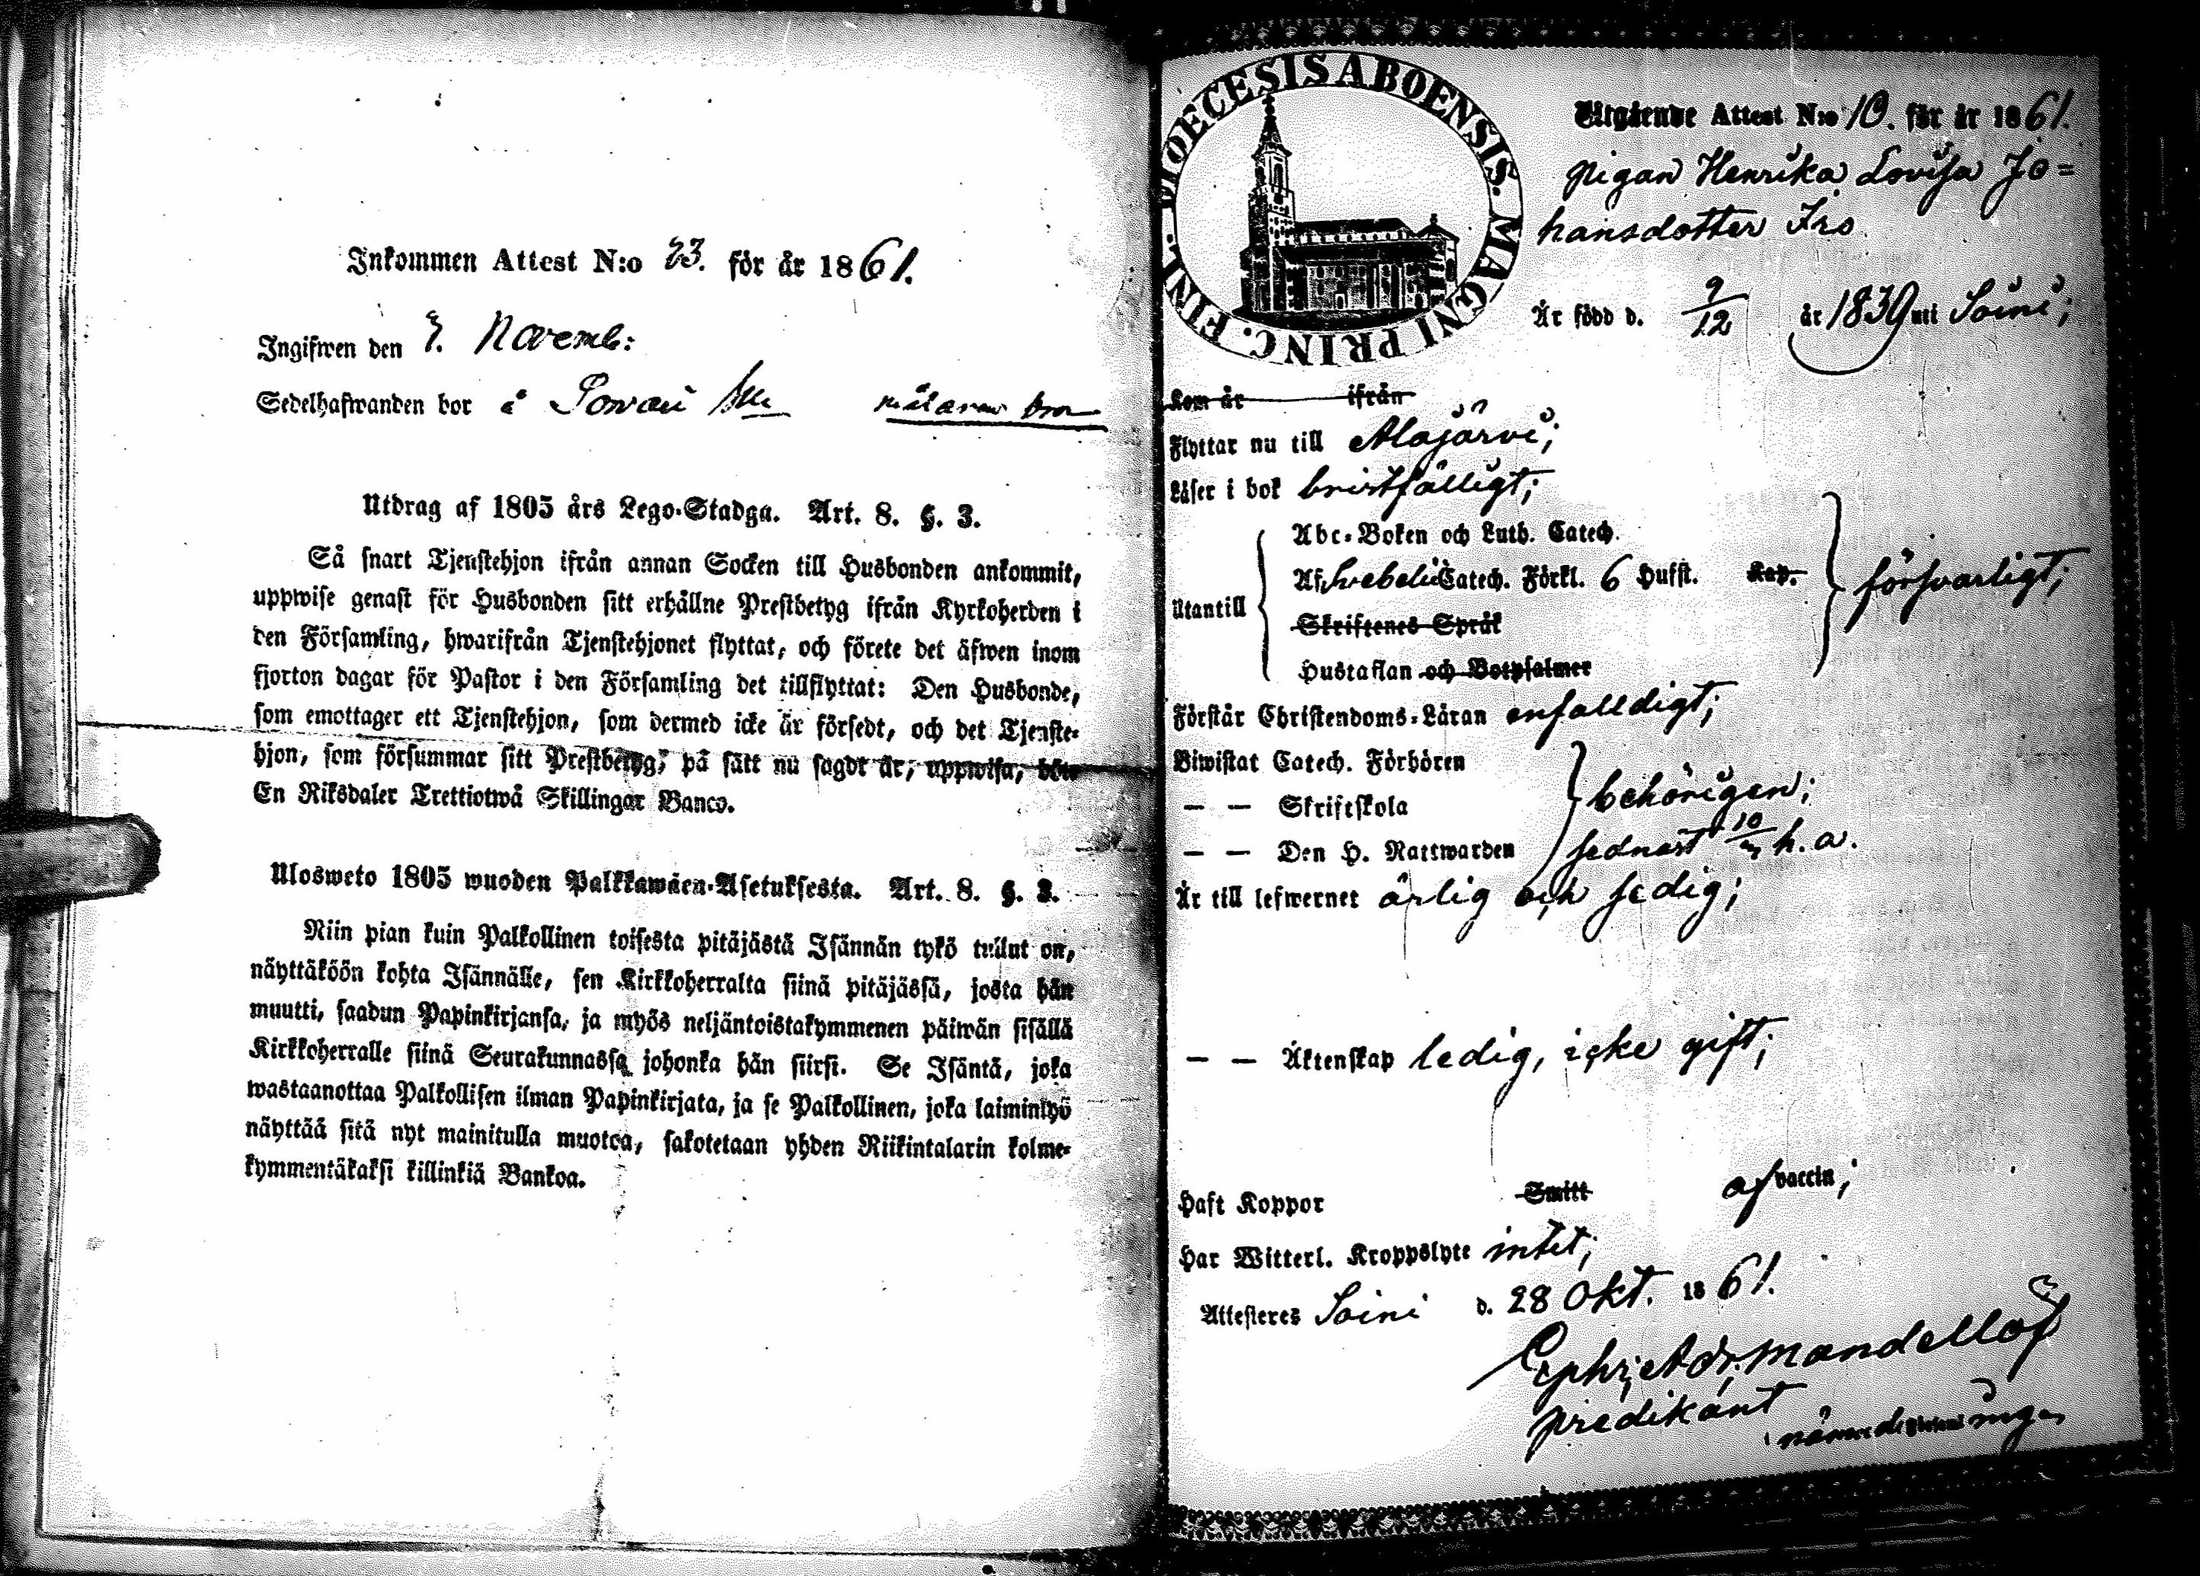 Inkommen Attest N:o 23. för år 1861.
Ingifwen den 8. Novemb:
Sedelhafwanden bor å
Utdrag af 1805 års Lego-Stadga. Art. 8. §. 3.
Så snart Tjenstehjon ifrån annan Socken till Husbonden ankommit,
uppwise genast för Husbonden sitt erhållne Prestbetyg ifrån Kyrkoherden i
den Församling, hwarifrån Tjenstehjonet flyttat, och förete det äfwen inom
fjorton dagar för Pastor i den Församling det tillflyttat: Den Husbonde,
som emottager ett Tjenstehjon, som dermed icke är försedt, och det Tjenste-
hjon, som försummar sitt Prestbetyg, på sätt nu sagdt är, uppwisa, böte
En Riksdaler Trettiotwå Skillingar Banco.
Ulosweto 1805 wuoden Palkkawäen-Asetuksesta. Art. 8. §. 3.
Niin pian kuin Palkollinen toisesta pitäjästä Isännän tykö tullut on,
näyttäköön kohta Isännälle, sen Kirkkoherralta siinä pitäjässä, josta hän
muutti, saadun Papinkirjansa, ja myös neljäntoistakymmenen päiwän sisällä
Kirkkoherralle siinä Seurakunnassa johonka hän siirsi. Se Isäntä, joka
wastaanottaa Palkollisen ilman Papinkirjata, ja se Palkollinen, joka laiminlyö
näyttää sitä nyt mainitulla muotoa, sakotetaan yhden Riikintalarin kolme-
kymmentäkaksi killinkiä Bankoa.
DIOECESIS ABOENSIS. MAGNI PRINC. FINL.
Utgående Attest N:o 10. för år 1861.
pigan Henrika Lovisa Jo=
hansdotter Iso
Är född d. 9/12 år 1839 uti Soini;
Kom år ifrån
Flyttar nu till Alajärvi;
Läser i bok bristfälligt;
Utantill
Abc-Boken och Luth. Catech.
Af Svebelii Catech. Förkl. 6 Hufst. Kap.
Skriftenes Språk
Hustaflan och Botpsalmer
försvarligt;
Förstår Christendoms-Läran enfalldigt;
Biwistat Catech. Förhören
— — Skriftskola
— — Den H. Nattwarden
behörigen;
sednast h. a.
Är till lefwernet ärlig och sedig;
— — Äktenskap ledig, icke gift;
Haft Koppor Smitt af vaccin;
Har Witterl. Kroppslyte intet;
Attesteras Soini d. 28 Okt. 1861.
Ephr. Adr. Mandellöf
predikant